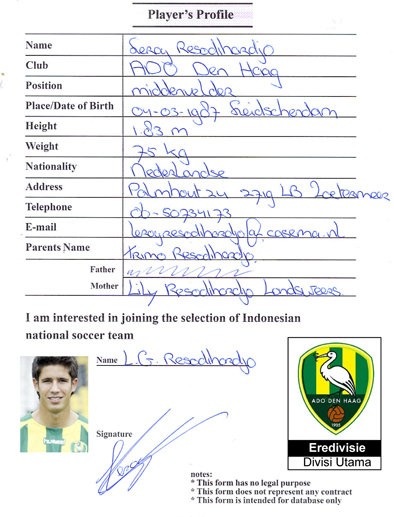 Player's Profile
Name Leroy Resodihardjo
Club ADO Den Haag
Position middenvelder
Place/Date of Birth 04-03-1987 Leidschendam
Height 1.83 m
Weight 75 kg
Nationality Nederlandse
Address Palmhout 24 2719 LB Zoetermeer
Telephone 06-50734173
E-mail leroyresodihardjo@casema.nl
Parents Name Trimo Resodihardjo
Father
Mother Lily Resodihardjo Landsweers
I am interested in joining the selection of Indonesian
national soccer team
Name L.G. Resodihardjo
ADO DEN HAAG
1905
Signature
Eredivisie
Divisi Utama
notes:
* This form has no legal purpose
* This form does not represent any contract
* This form is intended for database only